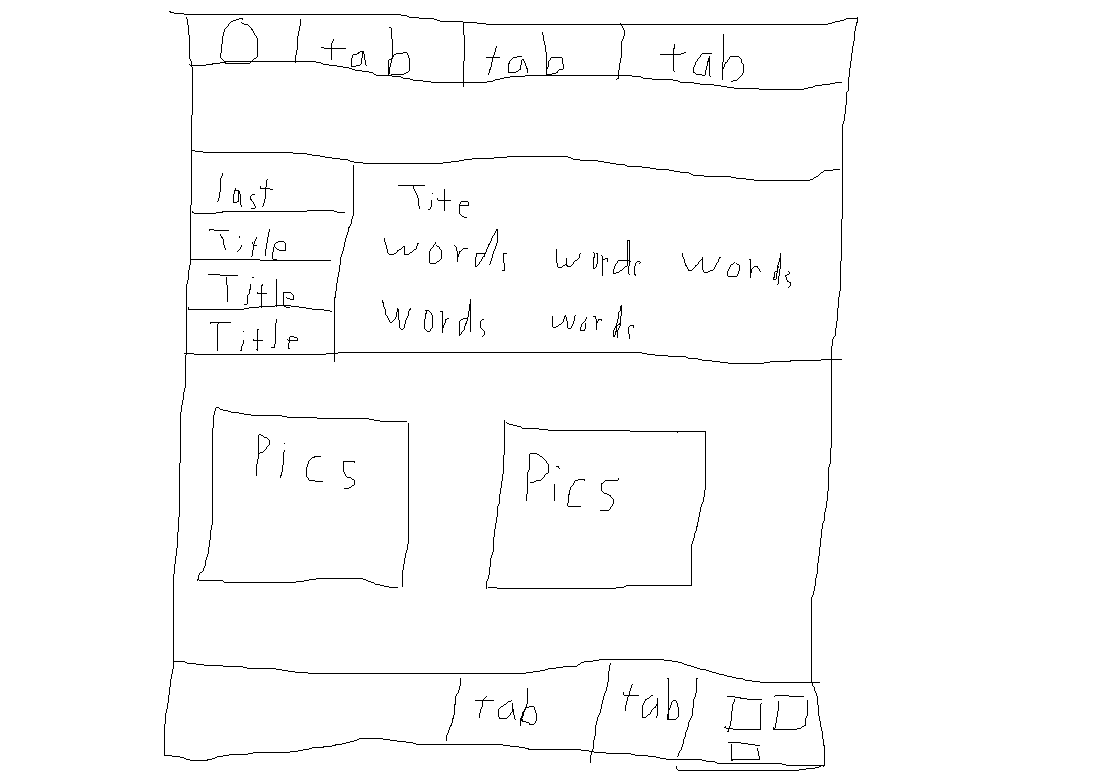 tab tab tab
last
Title
Title
Title
Tite
words words words
words words
Pics
Pics
tab tab